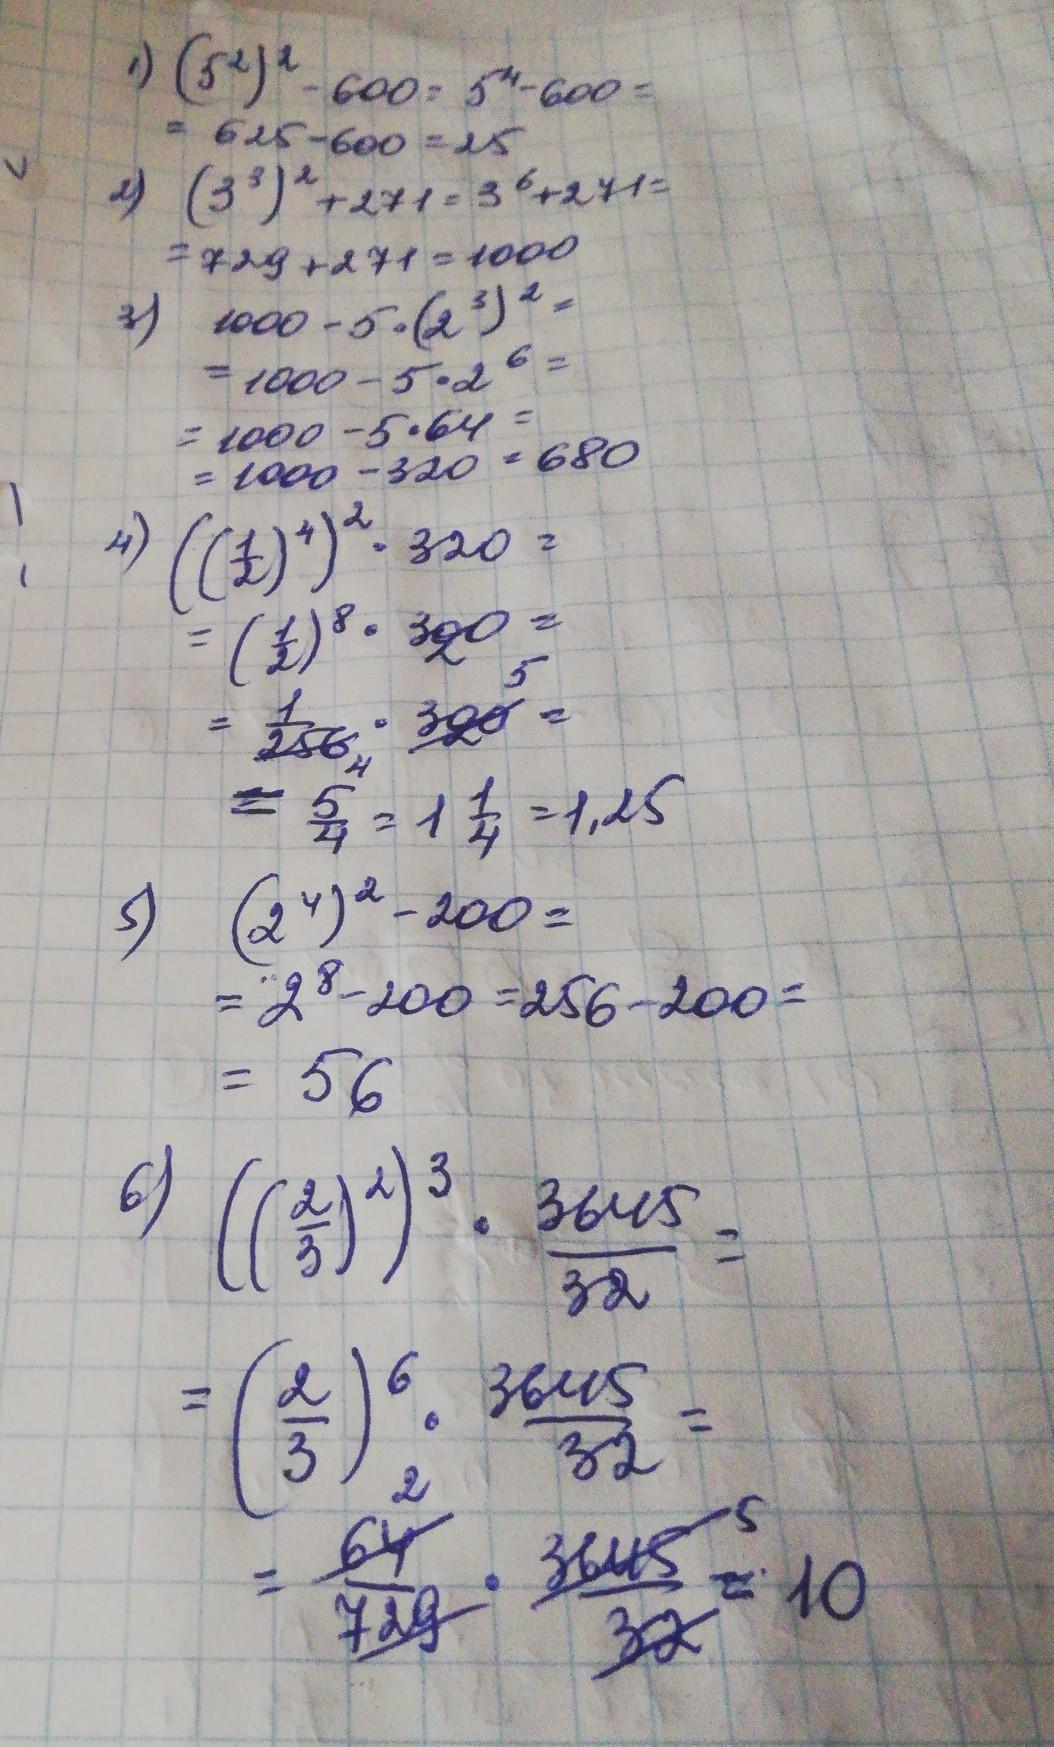 1) (5²)² - 600 = 5⁴ - 600 =
= 625 - 600 = 25
2) (3³)² + 271 = 3⁶ + 271 =
= 729 + 271 = 1000
3) 1000 - 5 · (2³)² =
= 1000 - 5 · 2⁶ =
= 1000 - 5 · 64 =
= 1000 - 320 = 680
4) ((1/2)⁴)² · 320 =
= (1/2)⁸ · 320 =
= 1/256 4 · 320 5 =
= 5/4 = 1 1/4 = 1,25
5) (2⁴)² - 200 =
= 2⁸ - 200 = 256 - 200 =
= 56
6) ((2/3)²)³ · 3645/32 =
= (2/3)⁶ · 3645/32 =
= 64 2/729 · 3645 5/32 = 10